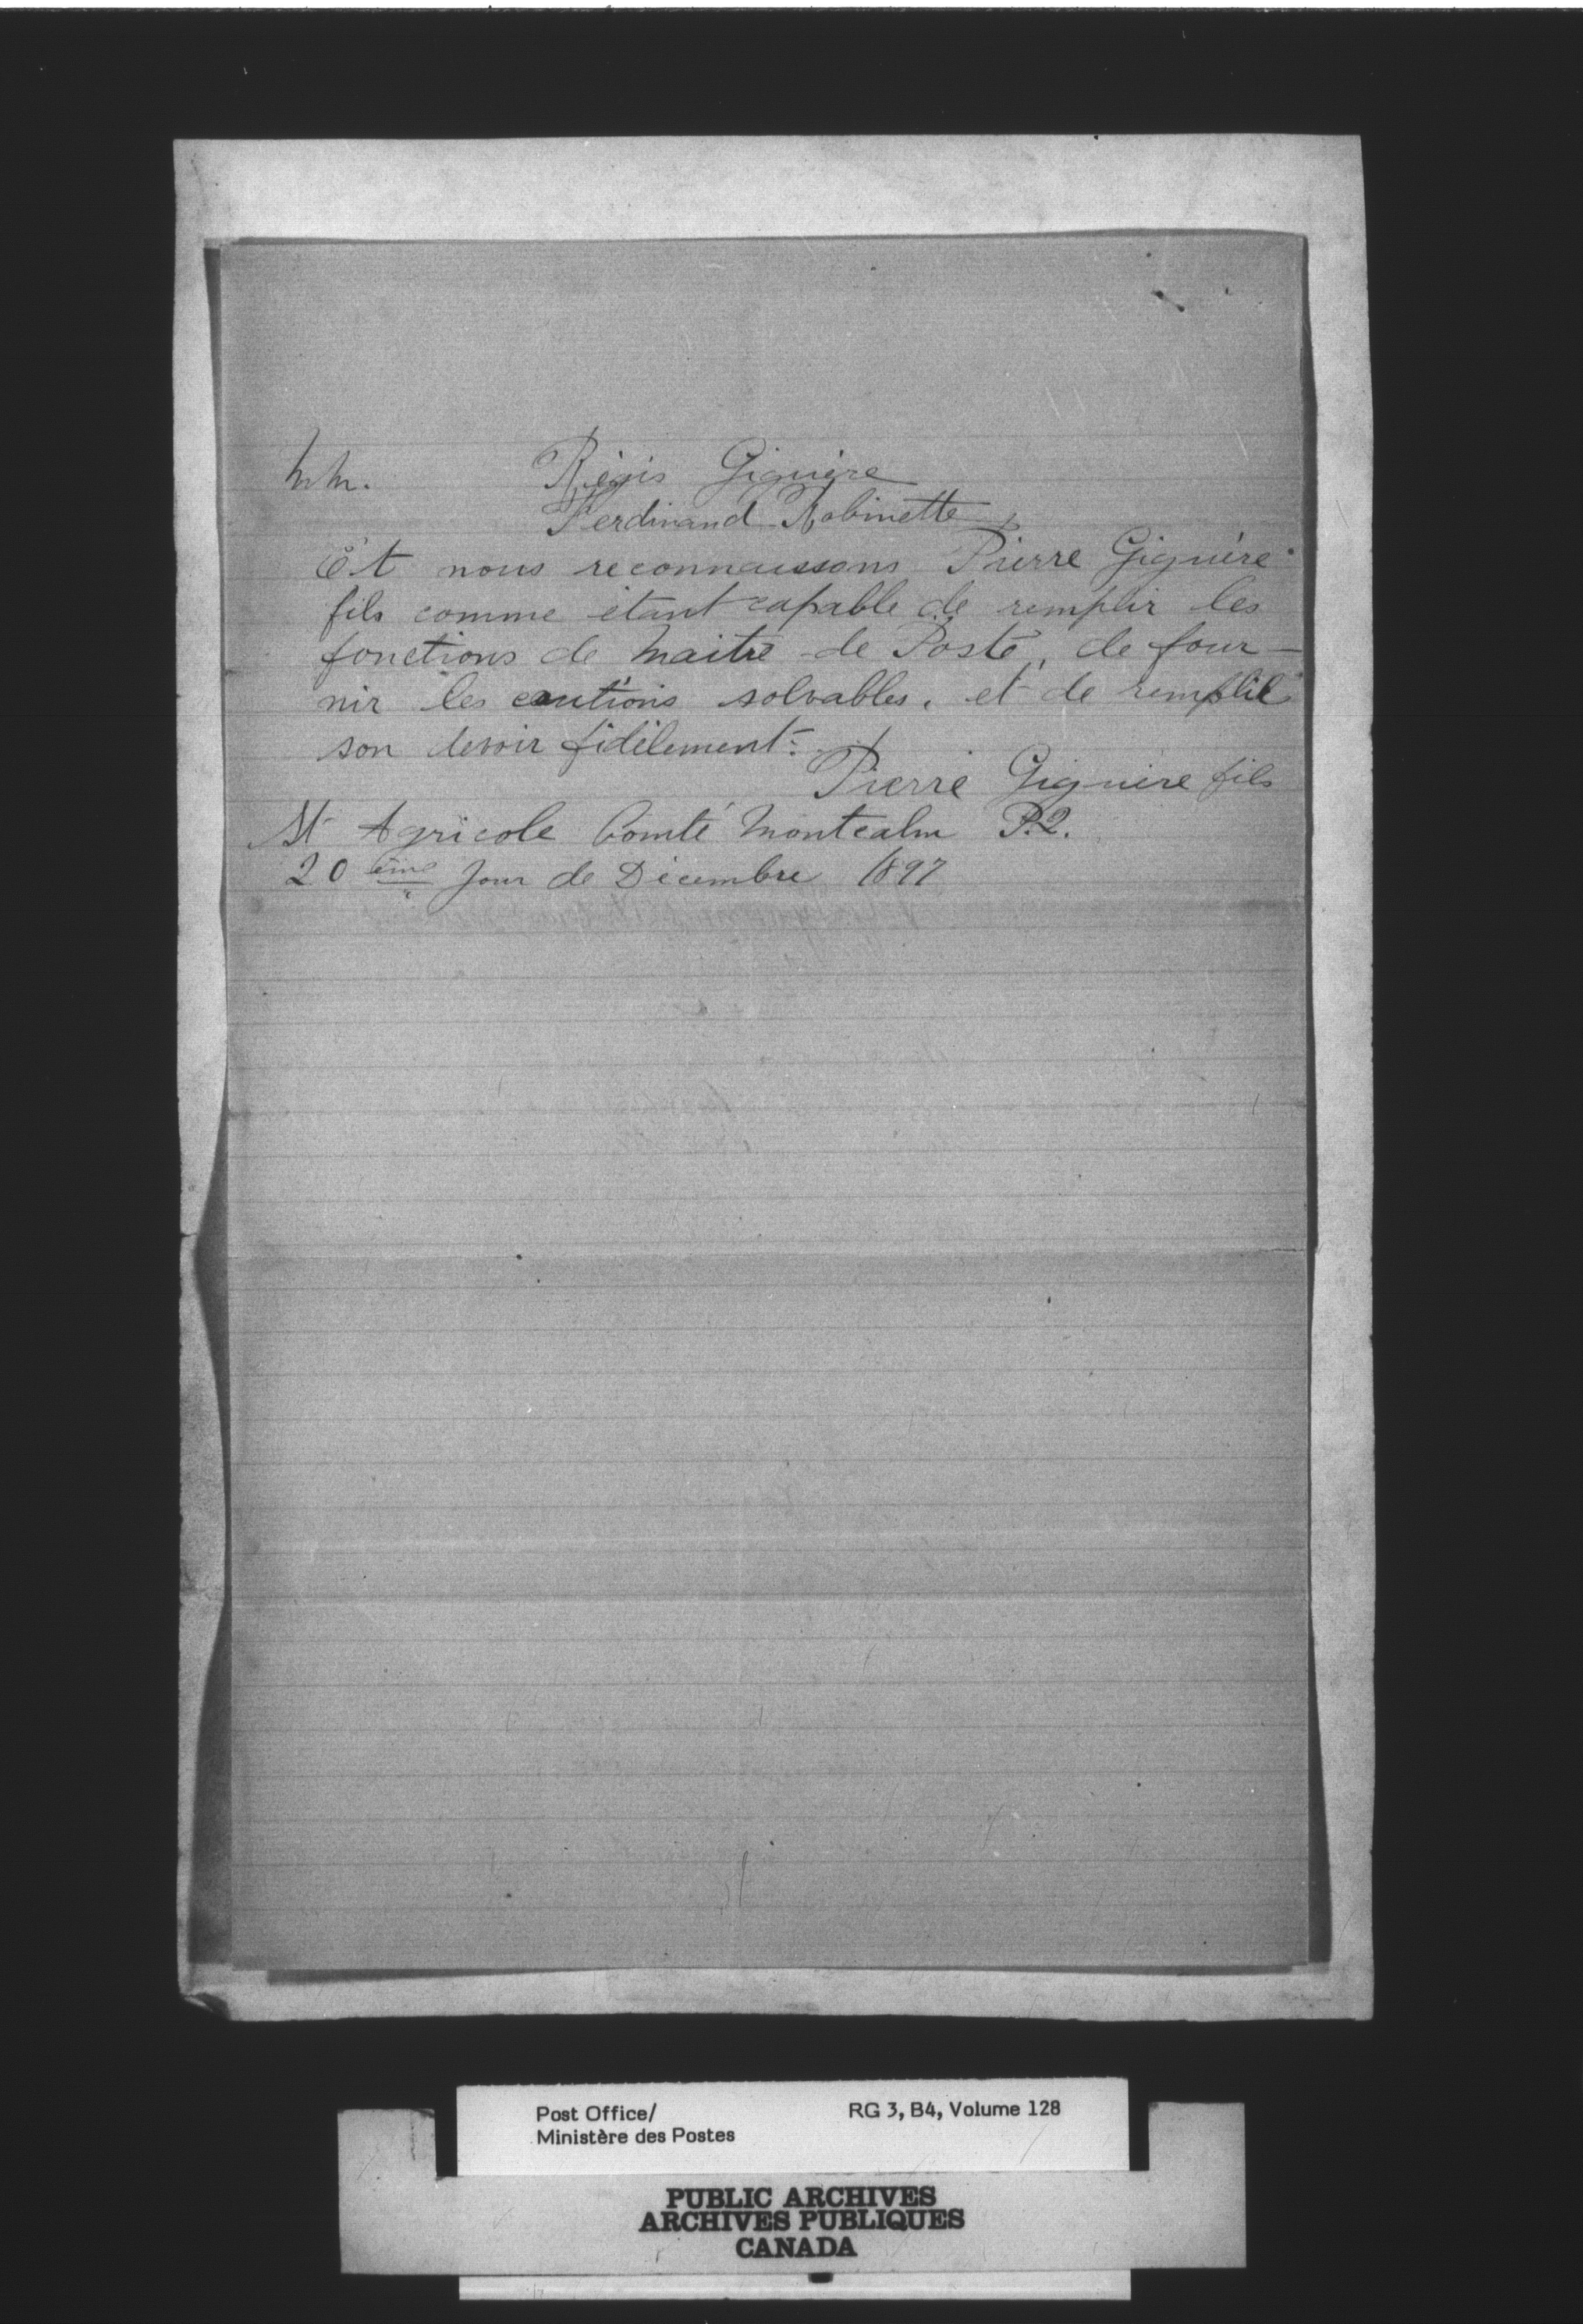 MM. Régis Giguère
Ferdinand Robinette
Et nous reconnaissons Pierre Giguère
fils comme étant capable de remplir les
fonctions de Maitre de Poste, de four-
nir les cautions solvables, et de remplir
son devoir fidèlement.
Pierre Giguère fils
St Agricole Comté Montcalm P.Q.
20 ème Jour de Décembre 1897
Post Office/
Ministère des Postes
RG 3, B4, Volume 128
PUBLIC ARCHIVES
ARCHIVES PUBLIQUES
CANADA